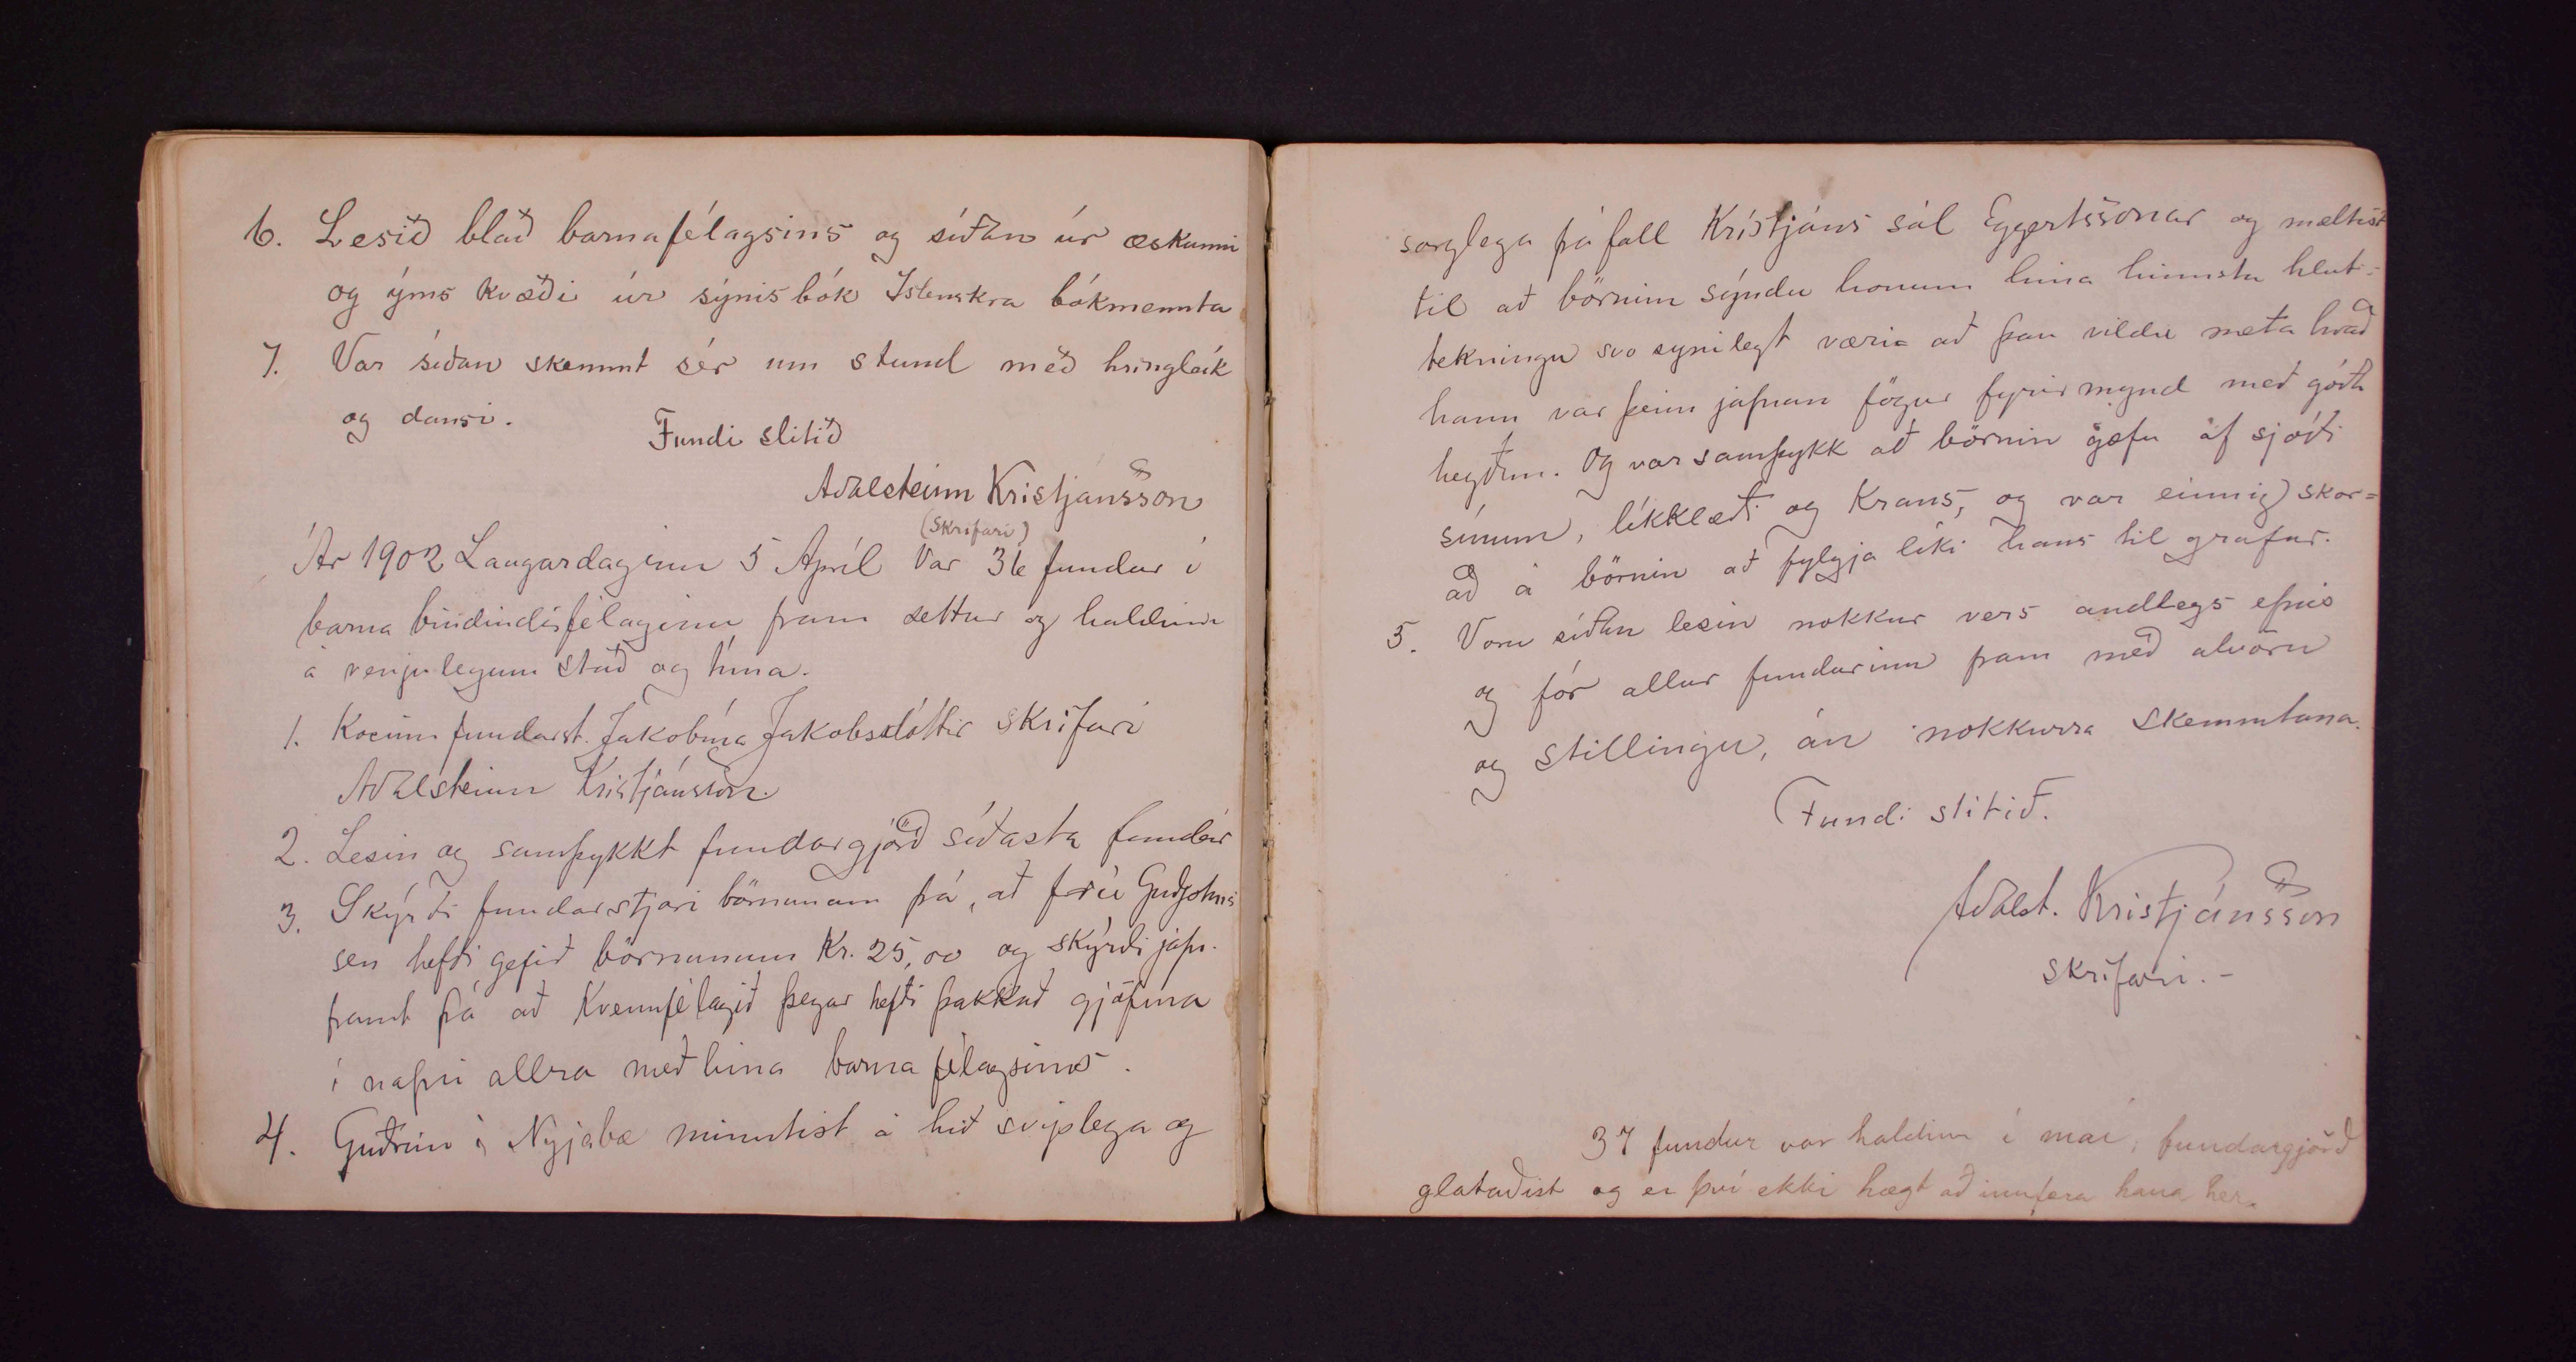 6. Lesið blað barnafélagsins og síðan úr æskunni
og ýms kvæði úr sýnisbók Islenskra bókmennta
7. Var síðan skemmt sér um stund með hringleik
og dansi.
Fundi slitið
Aðalsteinn Kristjánsson
(Skrifari)
Ár 1902 Laugardaginn 5 Apríl var 36 fundur í
barna bindindisfélaginu fram settur og haldinn
á venjulegum stað og tíma.
1. Kosinn fundarst. Jakobína Jakobsdóttir skrifari
Aðalsteinn Kristjánsson.
2. Lesin og samþykkt fundargjörð síðasta fundar
3. Skýrði fundarstjóri börnunum frá, að frú Guðjohn-
sen hefði gefið börnunum Kr. 25,00 og skýrði jafn-
framt frá að Kvennfélagið þegar hefði þakkað gjöfina
í nafni allra meðlima barna félagsins.
4. Guðrún í Nyjabæ minntist á hið sviplega og
sorglega fráfall Kristjáns sál Eggertssonar og mæltist
til að börnin sýndu honum hina hinnstu hlut-
tekningu svo synilegt væri að þau vildu meta hvað
hann var þeim jafnan fögur fyrirmynd með góða
hegðun. Og var samþykk að börnin gæfu af sjóði
sínum, líkklæði og Krans, og var einnig skor=
að á börnin að fylgja líki hans til grafar.
5. Voru síðan lesin nokkur vers andlegs efnis
og fór allur fundurinn fram með alvöru
og stillingu, án nokkurra skemmtana.
Fundi slitið.
Aðalst. Kristjánsson
skrifari.-
37 fundur var haldinn í maí, fundargjörð
glataðist og er því ekki hægt að innfæra hana her.